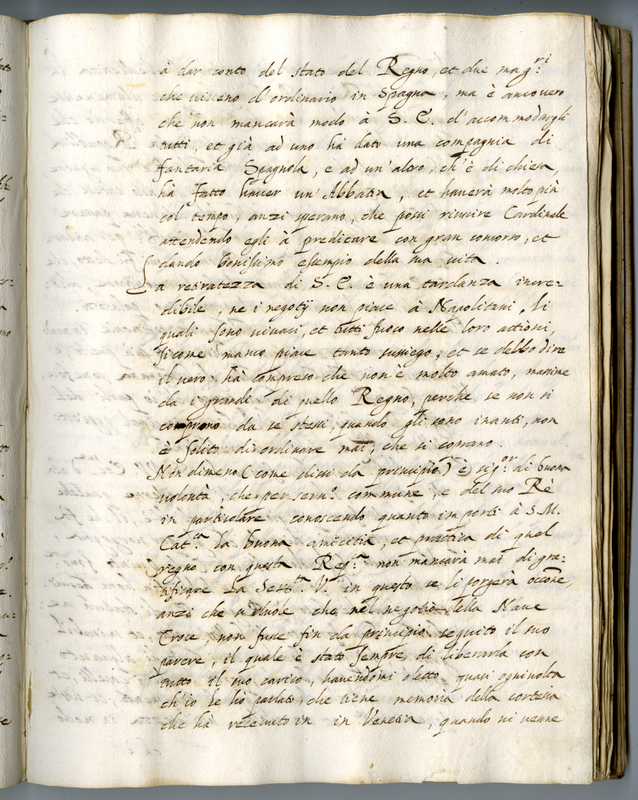 à dar conto del stato del Regno, et due mag.ri
che viveno d'ordinario in Spagna, ma è ancovero
che non mancarà modo à S. E. d'accommodargli
tutti, et già ad uno hà dato una compagnia di
fantaria Spagnola, e ad un'altro, ch'è di chiesa,
hà fatto haver un'Abbatia, et haverà molto più
col tempo, anzi sperano, che possi riuscire Cardinale
attendendo egli à predicare con gran concorso, et
dando bonissimo essempio della sua vita.
La retiratezza di S. E. è una tardanza incre-
dibile, ne i negotij non piace à Napolitani, li
quali sono vivaci, et tutti fuoco nelle loro attioni,
sicome manco piace tanto sussiego, et se debbo dire
il vero hà compreso che non è molto amato, massime
da i grandi di quello Regno, perche se non si
coprono da se stessi, quando gli sono inanti, non
è solito di ordinare mai, che si coprano.
Non dimeno (come dissi da principio) è sig.or di buona
volontà, che per serv.o commune, e del suo Rè
in particolare conoscendo quanto importi à S. M.
Catt.ca la buona amicitia, et prattica di quel
regno con questa Rep.ca non mancarà mai di gra-
tificare La Sere.tà V.a in questo se li porgerà occ.one,
anzi che si duole che nel negotio della Nave
Croce, non fusse fin da principio seguito il suo
parere, il quale è stato sempre di liberarla con
tutto il suo carico, havendomi detto, quasi ogni volta
ch'io le hò parlato, che tiene memoria della cortesia
che hà ricevuto in in Venetia, quando vi venne